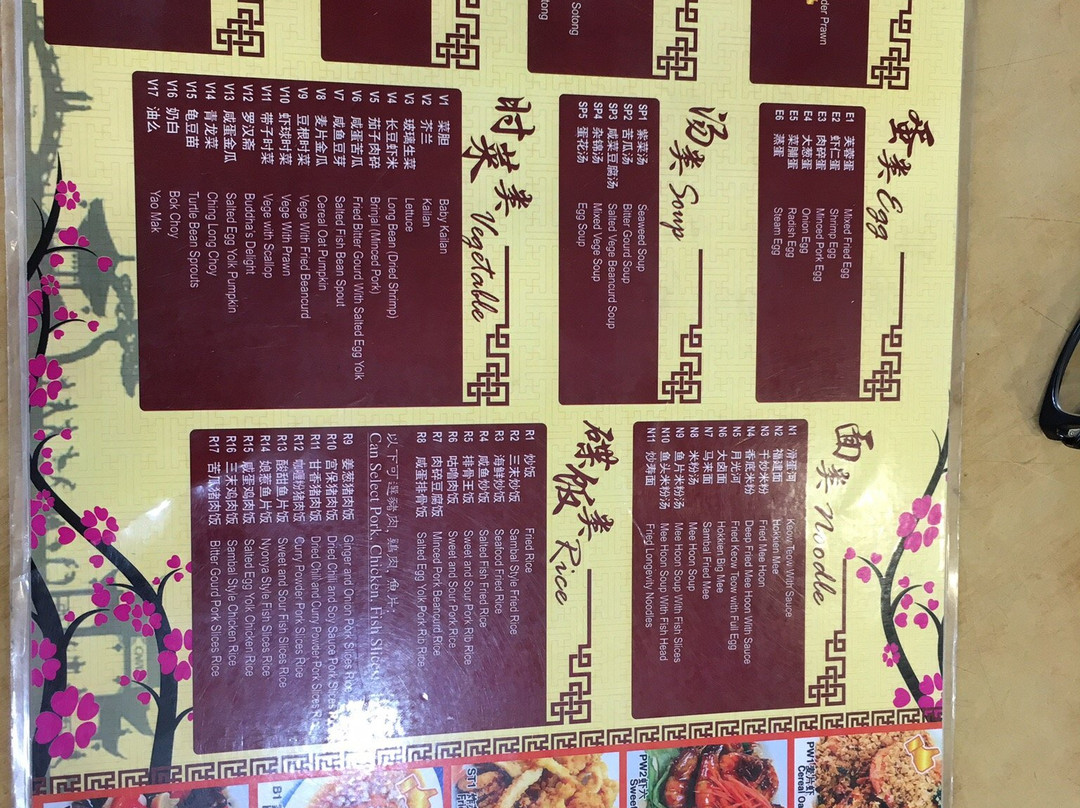 der Prawn
Sotong
otong
蛋类 Egg
E1 芙蓉蛋 Mixed Fried Egg
E2 虾仁蛋 Shrimp Egg
E3 肉碎蛋 Minced Pork Egg
E4 大葱蛋 Onion Egg
E5 菜脯蛋 Radish Egg
E6 蒸蛋 Steam Egg
汤类 Soup
SP1 紫菜汤 Seaweed Soup
SP2 苦瓜汤 Bitter Gourd Soup
SP3 咸菜豆腐汤 Salted Vege Beancurd Soup
SP4 杂锦汤 Mixed Vege Soup
SP5 蛋花汤 Egg Soup
时菜类 Vegetable
V1 菜胆 Baby Kailan
V2 芥兰 Kailan
V3 玻璃生菜 Lettuce
V4 长豆虾米 Long Bean (Dried Shrimp)
V5 茄子肉碎 Brinjal (Minced Pork)
V6 咸蛋苦瓜 Fried Bitter Gourd With Salted Egg Yolk
V7 咸鱼豆芽 Salted Fish Bean Spout
V8 麦片金瓜 Cereal Oat Pumpkin
V9 豆根时菜 Vege With Fried Beancurd
V10 虾球时菜 Vege With Prawn
V11 带子时菜 Vege with Scallop
V12 罗汉斋 Buddhea's Delight
V13 咸蛋金瓜 Salted Egg Yolk Pumpkin
V14 青龙菜 Ching Long Choy
V15 龟豆苗 Turtle Bean Sprouts
V16 奶白 Bok Choy
V17 油么 Yao Mak
面类 Noodle
N1 滑蛋河 Keow Teow With Sauce
N2 福建面 Hokkien Mee
N3 干炒米粉 Fried Mee Hoon
N4 香底米粉 Deep Fried Mee Hoon With Sauce
N5 月光河 Fried Keow Teow with Full Egg
N6 大卤面 Hokkien Big Mee
N7 马来面 Sambal Fried Mee
N8 米粉汤 Mee Hoon Soup
N9 鱼片米粉汤 Mee Hoon Soup With Fish Slices
N10 鱼头米粉汤 Mee Hoon Soup With Fish Head
N11 炒寿面 Fried Longevity Noodles
碟饭类 Rice
R1 炒饭 Fried Rice
R2 三末炒饭 Sambal Style Fried Rice
R3 海鲜炒饭 Seafood Fried Rice
R4 咸鱼炒饭 Salted Fish Fried Rice
R5 排骨王饭 Sweet and Sour Pork Rib Rice
R6 咕噜肉饭 Sweet and Sour Pork Rice
R7 肉碎豆腐饭 Minced Pork Beancurd Rice
R8 咸蛋排骨饭 Salted Egg Yolk Pork Rib Rice
以下可選豬肉, 鷄肉, 魚片,
Can Select Pork, Chicken, Fish Slices
R9 姜葱猪肉饭 Ginger and Onion Pork Slices Rice
R10 宫保猪肉饭 Dried Chili and Soy Sauce Pork Slices R
R11 甘香猪肉饭 Dried Chili and Curry Powder Pork Slices R
R12 咖喱炒猪肉饭 Curry Powder Pork Slices Rice
R13 酸甜鱼片饭 Sweet and Sour Fish Slices Rice
R14 娘惹鱼片饭 Nyonya Style Fish Slices Rice
R15 咸蛋鸡肉饭 Salted Egg Yolk Chicken Rice
R16 三末鸡肉饭 Sambal Style Chicken Rice
R17 苦瓜猪肉饭 Bitter Gourd Pork Slices Rice
PW1 麦片虾
Cereal Oa
PW2
Sweet
ST1
B1